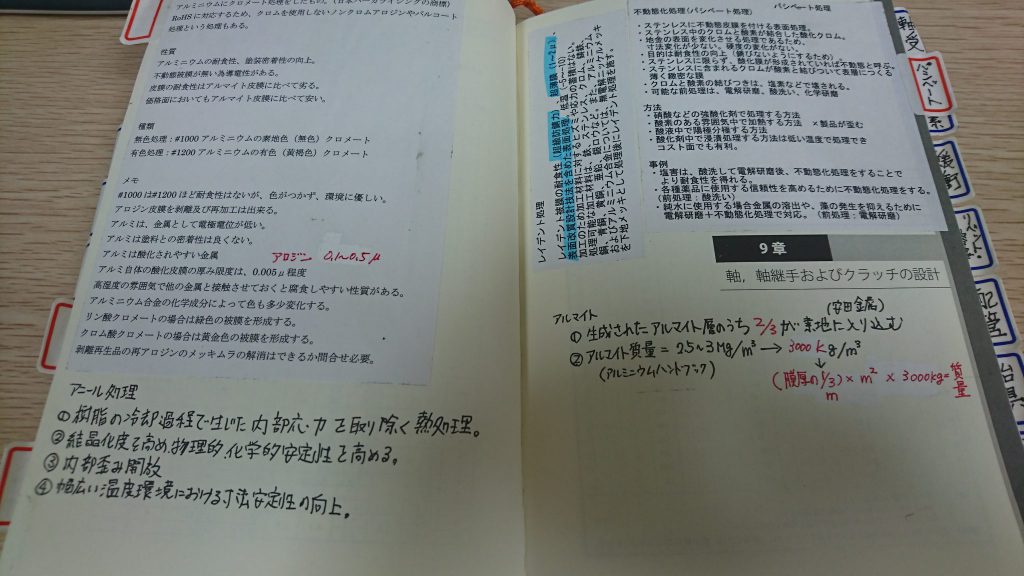 アルミニウムにクロメート処理をしたもの。（日本パーカライジングの商標）
RoHSに対応するため、クロムを使用しないノンクロムアロジンやパルコート
処理という処理もある。
性質
アルミニウムの耐食性、塗装密着性の向上。
不動態被膜が無い為導電性がある。
皮膜の耐食性はアルマイト皮膜に比べて劣る。
価格面においてもアルマイトに比べて安い。
種類
無色処理：#1000アルミニウムの素地色（無色）クロメート
有色処理：#1200アルミニウムの有色（黄褐色）クロメート
メモ
#1000は#1200ほど耐食性はないが、色がつかず、環境に優しい。
アロジン皮膜を剥離及び再加工は出来る。
アルミは、金属として電極電位が低い。
アルミは塗料との密着性は良くない。
アルミは酸化されやすい金属
アロジン 0.1～0.5μ
アルミ自体の酸化皮膜の厚み限度は、0.005μ程度
高湿度の雰囲気で他の金属と接触させておくと腐食しやすい性質がある。
アルミニウム合金の化学成分によって色も多少変化する。
リン酸クロメートの場合は緑色の被膜を形成する。
クロム酸クロメートの場合は黄金色の被膜を形成する。
剥離再生品の再アロジンのメッキムラの解消はできるか問合せ必要。
アニール処理
①樹脂の冷却過程で生じた内部応力を取り除く熱処理。
②結晶化度を高め、物理的化学的安定性を高める。
③内部歪み開放
④幅広い温度環境における寸法安定性の向上。
レイデント処理
レイデント被膜の耐食性（超級防錆力）、超薄膜（1～2μ）、
表面改質設計技法を含めた表面処理。低温（0～-10）
加工のため加工材料に対するヒズミや応力の蓄積はない。
処理可能な加工材料は、鉄、ステンレス、クロム、鋳鉄、
銅、青銅、黄銅、亜鉛、銀ロウなど。また、アルミニウム
およびアルミニウム合金については、無電解ニッケルメッキ
を下地メッキとして処理後にレイデント処理を施す。
不動態化処理（パシベート処理） パシベート処理
・ステンレスに不動態皮膜を付ける表面処理。
・ステンレス中のクロムと酸素が結合した酸化クロム。
・地金の表面を変化させる処理であるため、
寸法変化が少ない。硬度の変化がない。
・目的は耐食性の向上（錆びないようにするため）。
・ステンレスに限らず、酸化膜が形成されていれば不動態と呼ぶ。
・ステンレスに含まれるクロムが酸素と結びついて表層につくる
薄く緻密な膜
・クロムと酸素の結びつきは、塩素などで壊される。
・可能な前処理は、電解研磨、酸洗い、化学研磨
方法
・硝酸などの強酸化剤で処理する方法
・酸素のある雰囲気中で加熱する方法 ×製品が歪む
・酸液中で陽極分極する方法
・酸化剤中で浸漬処理する方法は低い温度で処理でき
コスト面でも有利。
事例
・塩害は、酸洗して電解研磨後、不動態化処理をすることで
より耐食性を得れる。
・各種薬品に使用する信頼性を高めるために不動態化処理をする。
（前処理：酸洗い）
・純水に使用する場合金属の溶出や、藻の発生を抑えるために
電解研磨＋不動態化処理で対応。（前処理：電解研磨）
9章
軸，軸継手およびクラッチの設計
アルマイト
(安田金属)
①生成されたアルマイト層のうち2/3が素地に入り込む
②アルマイト質量＝2.5～3Mg/m³→3000kg/m³
(アルミニウムハンドブック)
↓
(膜厚の1/3)×m²×3000kg=質量
m
軸受
パシベート
配管
治具